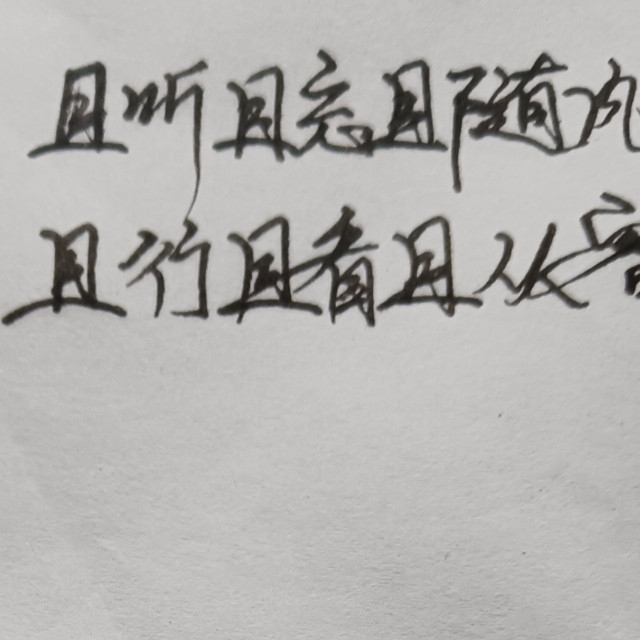 且听且忘且随风
且行且看且从容